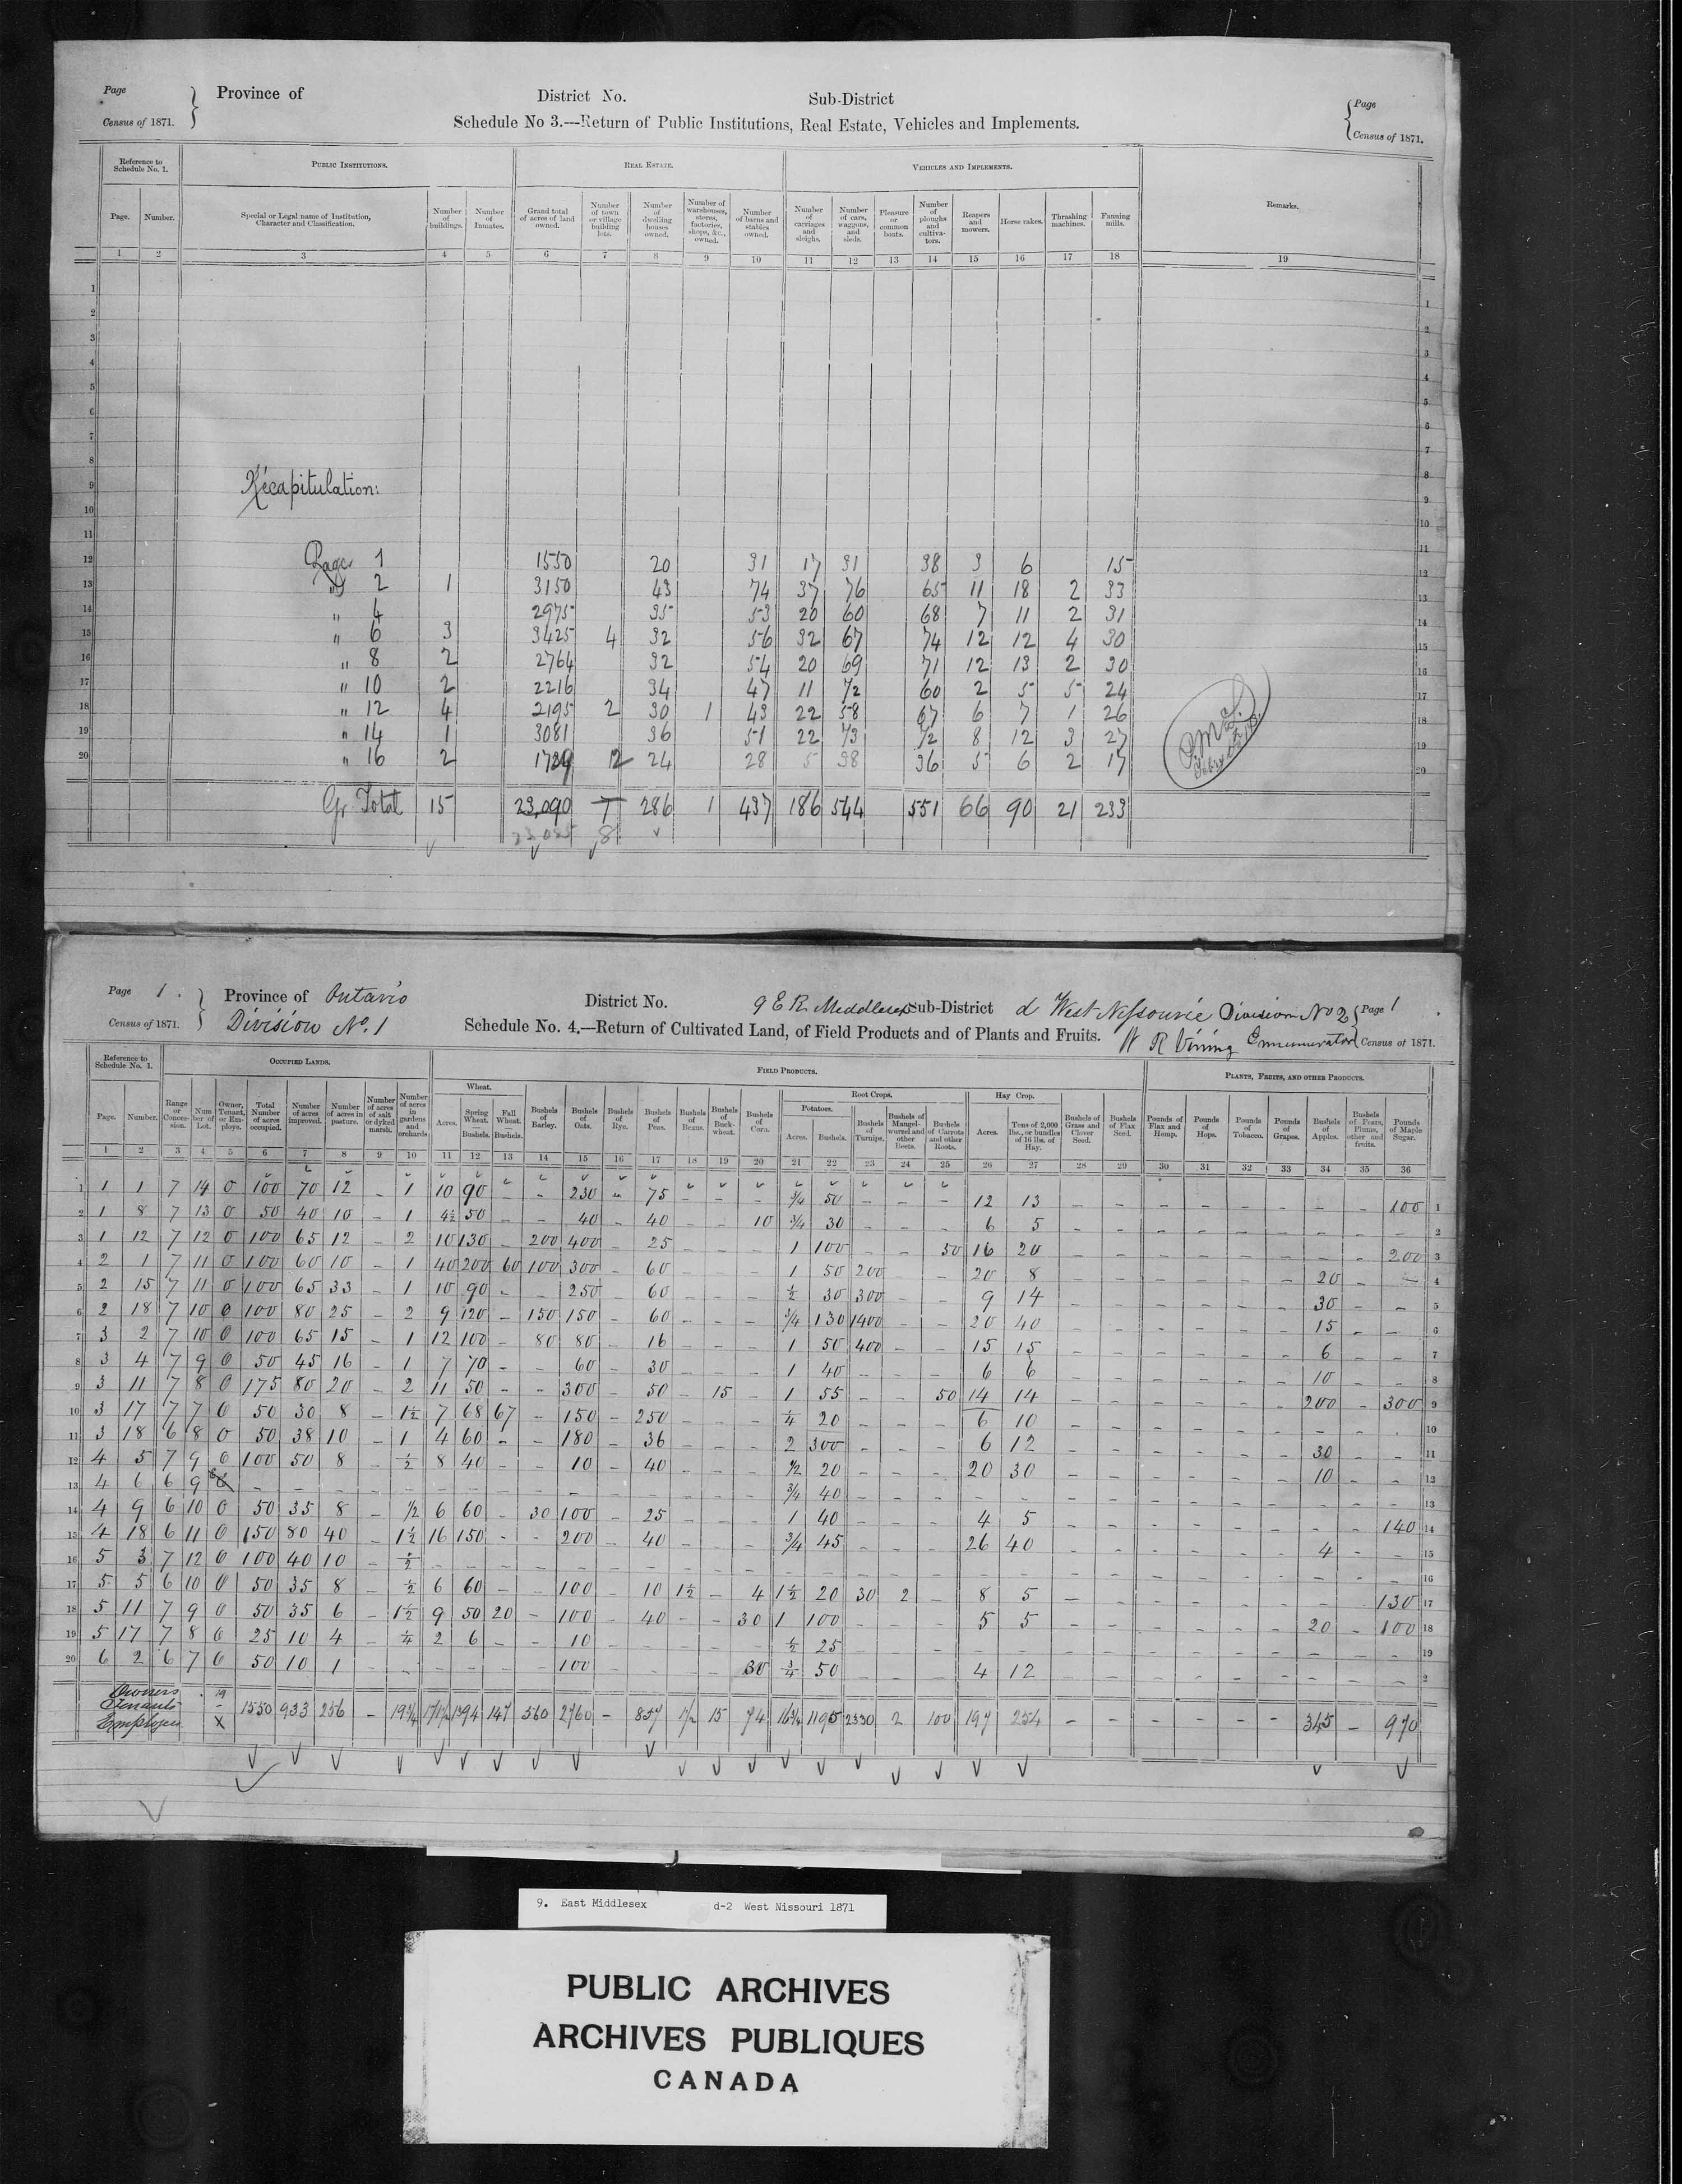 Page
Census of 1871.
Province of
District No.
Sub-District
Page
Census of 1871.
Schedule No 3.—Return of Public Institutions, Real Estate, Vehicles and Implements.
Reference to Schedule No. 1. Public Institutions. Real Estate. Vehicles and Implements. Remarks.
Page. Number. Special or Legal name of Institution, Character and Classification. Number of buildings. Number of Inmates. Grand total of acres of land owned. Number of town or village building lots. Number of dwelling houses owned. Number of warehouses, stores, factories, shops, &c., owned. Number of barns and stables owned. Number of carriages and sleighs. Number of cars, waggons, and sleds. Pleasure or common boats. Number of ploughs and cultivators. Reapers and mowers. Horse rakes. Thrashing machines. Fanning mills.
1 2 3 4 5 6 7 8 9 10 11 12 13 14 15 16 17 18 19
Récapitulation:
Page 1 1550 20 31 17 31 38 3 6 15
" 2 1 3150 43 74 37 76 65 11 18 2 33
" 4 2975 35 53 20 60 68 7 11 2 31
" 6 3 3425 4 32 56 32 67 74 12 12 4 30
" 8 2 2764 32 54 20 69 71 12 13 2 30
" 10 2 2216 34 47 11 72 60 2 5 5 24
" 12 4 2195 2 30 1 43 22 58 67 6 7 1 26
" 14 1 3081 36 51 22 73 72 8 12 3 27
" 16 2 1729 12 24 28 5 38 36 5 6 2 17
Gr Total 15 23,090 7 286 1 437 186 544 551 66 90 21 233
8
Page 1.
Census of 1871.
Province of Ontario
Division No. 1
District No. 9 E R Middlesex Sub-District d West Nissourie Division No 2
Page 1
Schedule No. 4.—Return of Cultivated Land, of Field Products and of Plants and Fruits.
W R Vining Ennumerator
Census of 1871.
Reference to Schedule No. 1. Occupied Lands. Field Products. Plants, Fruits, and other Products.
Wheat. Root Crops. Hay Crop.
Potatoes.
Page. Number. Range or Concession. Number of Lot. Owner, Tenant, or Employe. Total Number of acres occupied. Number of acres improved. Number of acres in pasture. Number of acres of salt or dyked marsh. Number of acres in gardens and orchards. Acres. Spring Wheat.—Bushels. Fall Wheat.—Bushels. Bushels of Barley. Bushels of Oats. Bushels of Rye. Bushels of Peas. Bushels of Beans. Bushels of Buckwheat. Bushels of Corn. Acres. Bushels. Bushels of Turnips. Bushels of Mangel-wurzel and other Beets. Bushels of Carrots and other Roots. Acres. Tons of 2,000 lbs., or bundles of 16 lbs. of Hay. Bushels of Grass and Clover Seed. Bushels of Flax Seed. Pounds of Flax and Hemp. Pounds of Hops. Pounds of Tobacco. Pounds of Grapes. Bushels of Apples. Bushels of Pears, Plums, other and fruits. Pounds of Maple Sugar.
1 2 3 4 5 6 7 8 9 10 11 12 13 14 15 16 17 18 19 20 21 22 23 24 25 26 27 28 29 30 31 32 33 34 35 36
1 1 1 7 14 0 100 70 12 – 1 10 90 – – 230 – 75 – – – 3/4 50 – – – 12 13 – – – – – – – – 100 1
2 1 8 7 13 0 50 40 10 – 1 4½ 50 – – 40 – 40 – – 10 3/4 30 – – – 6 5 – – – – – – – – – 2
3 1 12 7 12 0 100 65 12 – 2 10 130 – 200 400 – 25 – – – 1 100 – – 50 16 20 – – – – – – – – 200 3
4 2 1 7 11 0 100 60 10 – 1 40 200 60 100 300 – 60 – – – 1 50 200 – – 20 8 – – – – – – 20 – – 4
5 2 15 7 11 0 100 65 33 – 1 10 90 – – 250 – 60 – – – ½ 30 300 – – 9 14 – – – – – – 30 – – 5
6 2 18 7 10 0 100 80 25 – 2 9 120 – 150 150 – 60 – – – 3/4 130 1400 – – 20 40 – – – – – – 15 – – 6
7 3 2 7 10 0 100 65 15 – 1 12 100 – 80 80 – 16 – – – 1 50 400 – – 15 15 – – – – – – 6 – – 7
8 3 4 7 9 0 50 45 16 – 1 7 70 – – 60 – 30 – – – 1 40 – – – 6 6 – – – – – – 10 – – 8
9 3 11 7 8 0 175 80 20 – 2 11 50 – – 300 – 50 – 15 – 1 55 – – 50 14 14 – – – – – – 200 – 300 9
10 3 17 7 7 0 50 30 8 – 1½ 7 68 67 – 150 – 250 – – – ¼ 20 – – – 6 10 – – – – – – – – – 10
11 3 18 6 8 0 50 38 10 – 1 4 60 – – 180 – 36 – – – 2 300 – – – 6 12 – – – – – – 30 – – 11
12 4 5 7 9 0 100 50 8 – ½ 8 40 – – 10 – 40 – – – ½ 20 – – – 20 30 – – – – – – 10 – – 12
13 4 6 6 9 – – – – – – – – – – – – – – – – 3/4 40 – – – – – – – – – – – – – – 13
14 4 9 6 10 0 50 35 8 – ½ 6 60 – 30 100 – 25 – – – 1 40 – – – 4 5 – – – – – – – – 140 14
15 4 18 6 11 0 150 80 40 – 1½ 16 150 – – 200 – 40 – – – 3/4 45 – – – 26 40 – – – – – – 4 – – 15
16 5 3 7 12 0 100 40 10 – ½ – – – – – – – – – – – – – – – – – – – – – – – – – – 16
17 5 5 6 10 0 50 35 8 – ½ 6 60 – – 100 – 10 1½ – 4 1½ 20 30 2 – 8 5 – – – – – – – – 130 17
18 5 11 7 9 0 50 35 6 – 1½ 9 50 20 – 100 – 40 – – 30 1 100 – – – 5 5 – – – – – – 20 – 100 18
19 5 17 7 8 0 25 10 4 – ¼ 2 6 – – 10 – – – – – ½ 25 – – – – – – – – – – – – – – 19
20 6 2 6 7 0 50 10 1 – – – – – – 100 – – – – 30 ¾ 50 – – – 4 12 – – – – – – – – – 2
Owners 19
Tenants –
Employees X
1550 933 256 – 19¾ 171½ 1394 147 560 2760 – 857 1½ 15 74 16¾ 1195 2330 2 100 197 254 – – – – – – 345 – 970
9. East Middlesex d-2 West Nissouri 1871
PUBLIC ARCHIVES
ARCHIVES PUBLIQUES
CANADA